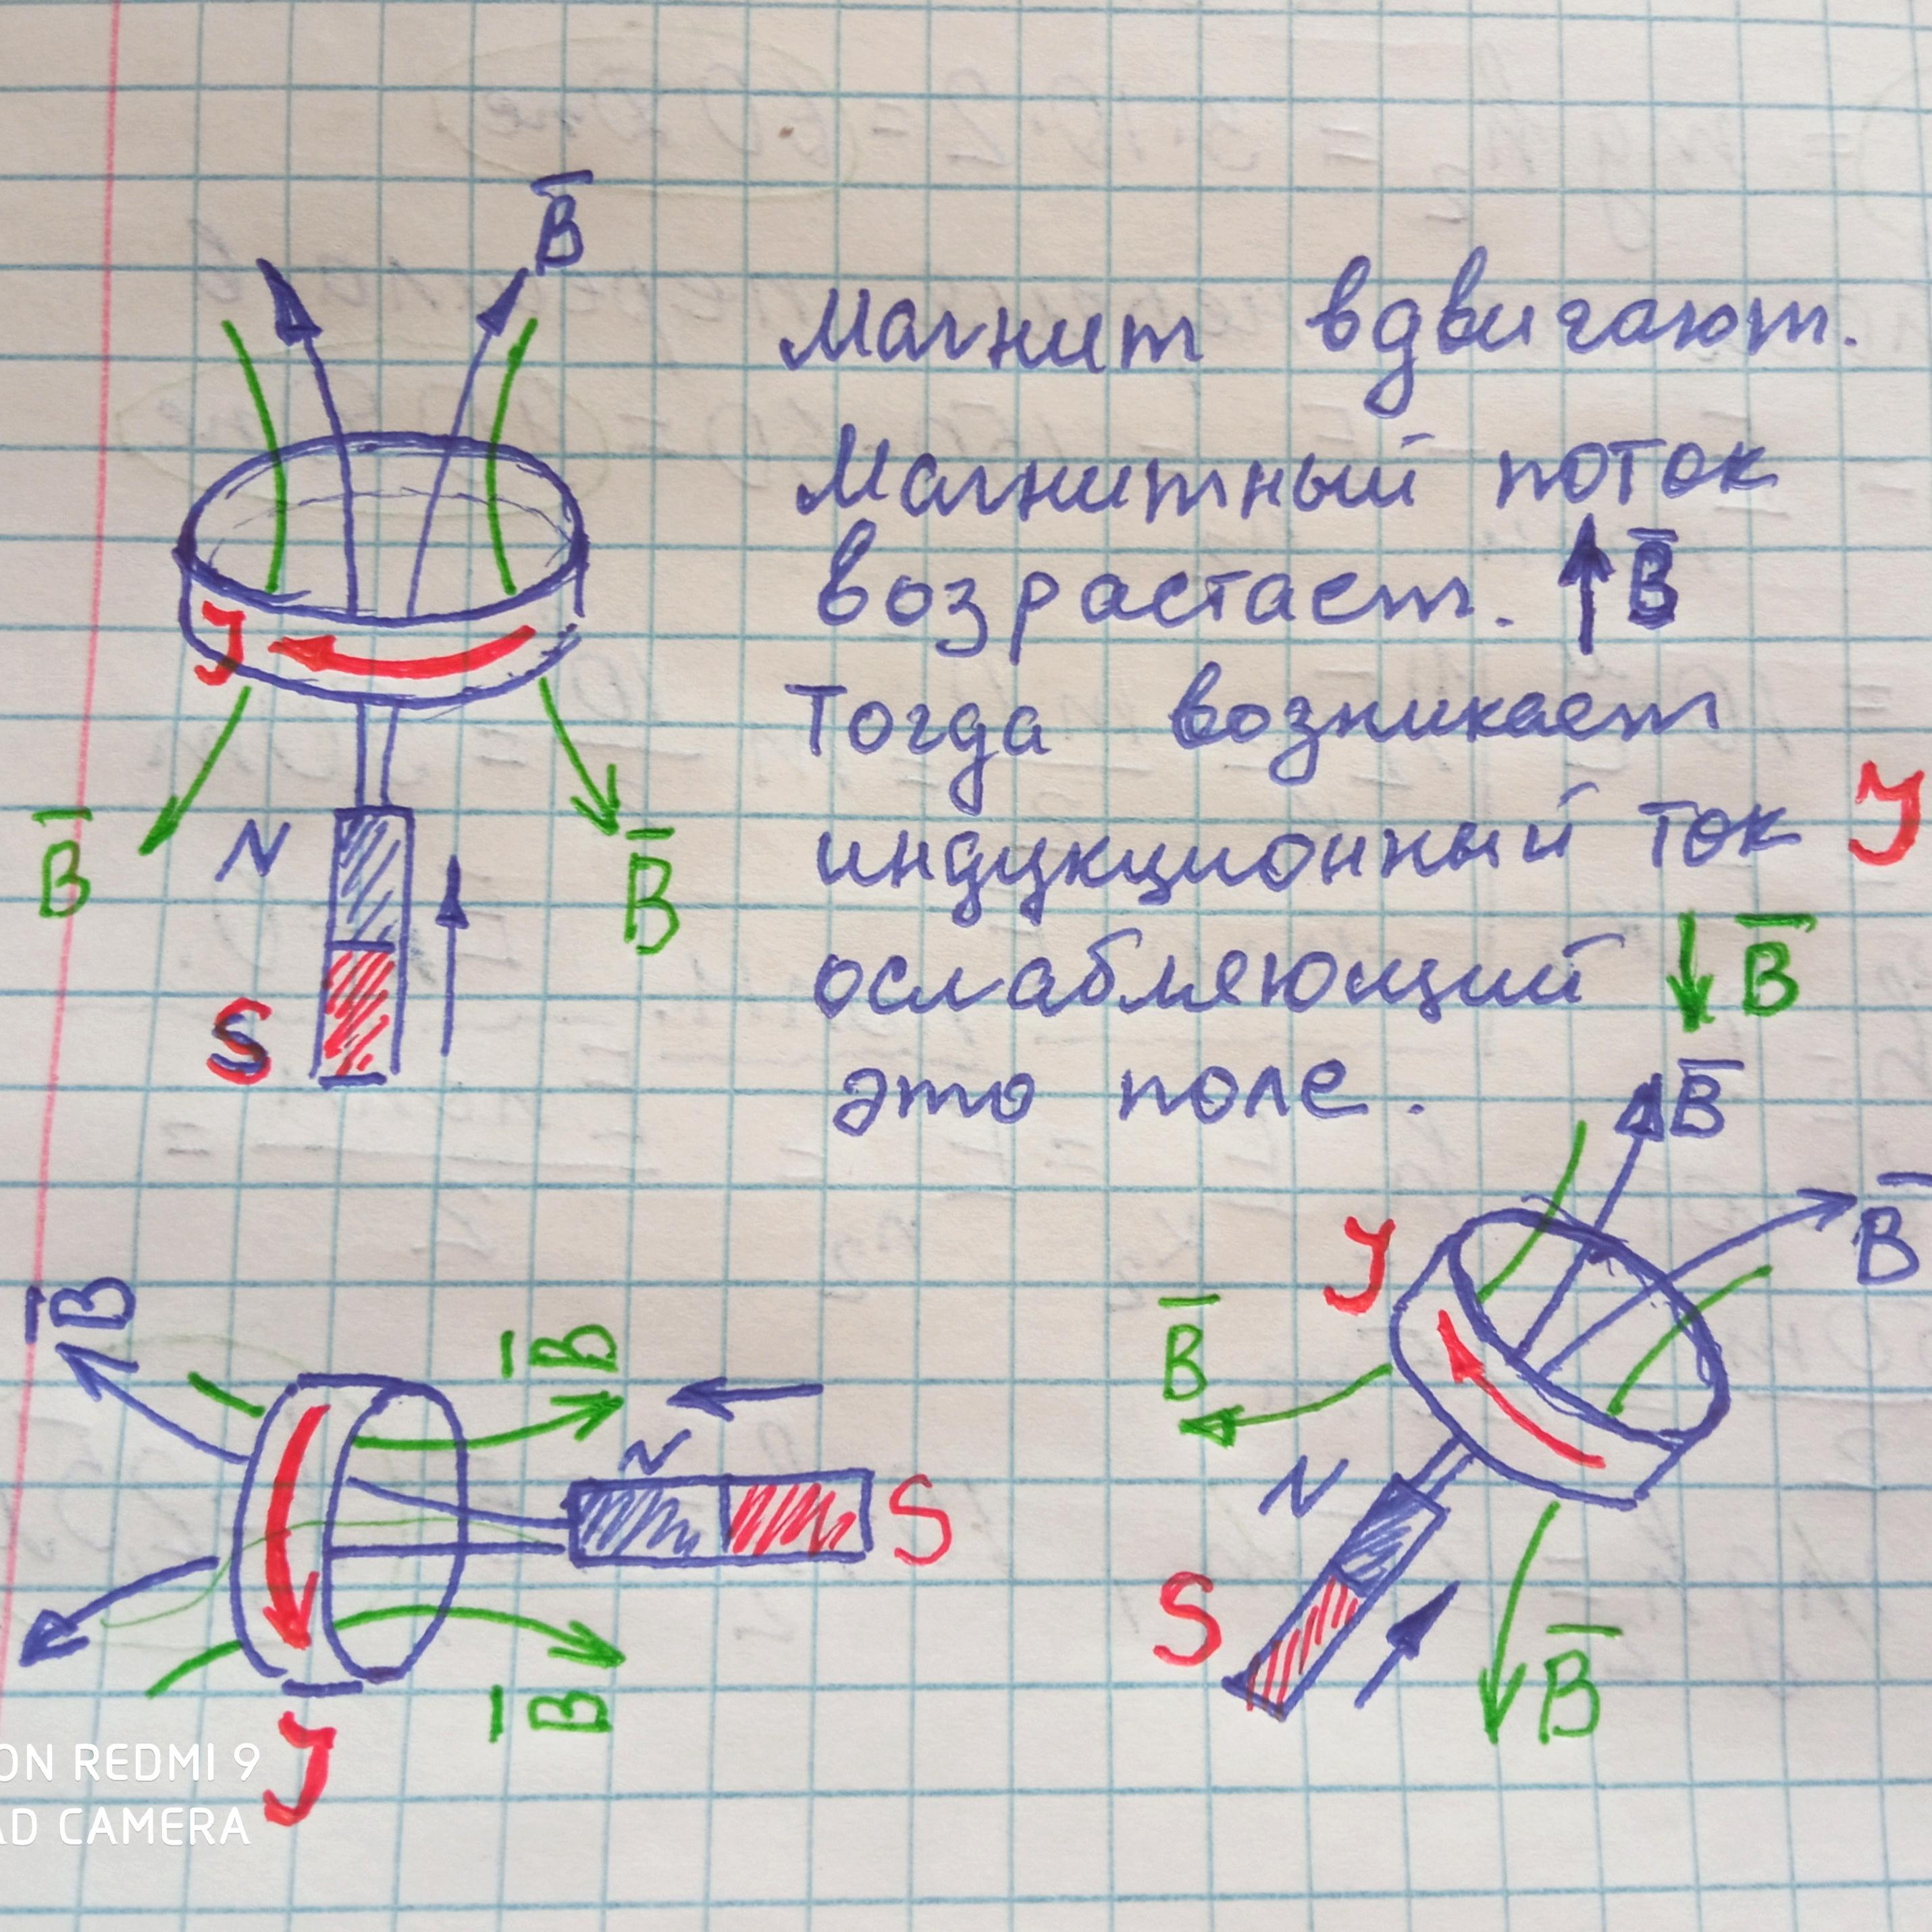 B̅
Магнит вдвигают.
Магнитный поток
возрастает. ↑B̅
Тогда возникает
индукционный ток J
ослабляющий ↓B̅
это поле.
J
B̅
B̅
N
S
B̅
B̅
J
B̅
N
S
B̅
B̅
B̅
N
S
B̅
J
ON REDMI 9
AD CAMERA